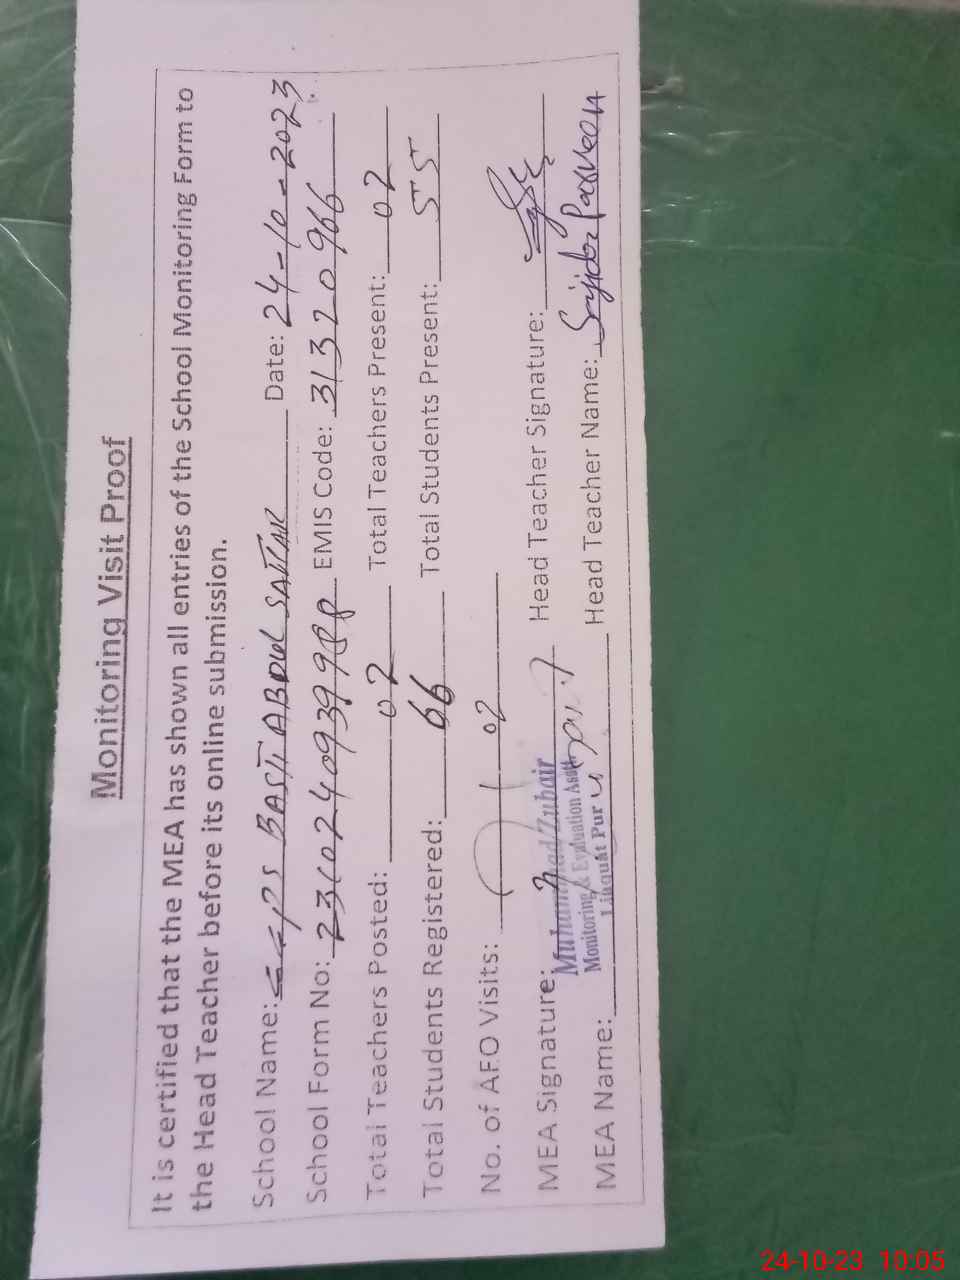 Monitoring Visit Proof
It is certified that the MEA has shown all entries of the School Monitoring Form to
the Head Teacher before its online submission.
School Name: GGPS BASTI ABDUL SATTAR Date: 24-10-2023
School Form No: EMIS Code: 31320966
Total Teachers Posted: 02 Total Teachers Present: 02
Total Students Registered: 66 Total Students Present: 55
No. of AEO Visits: 02
MEA Signature: Head Teacher Signature:
Muhammad Zubair
Monitoring & Evaluation Asstt
Liaquat Pur
MEA Name: Head Teacher Name: Sajida Parveen
24-10-23 10:05